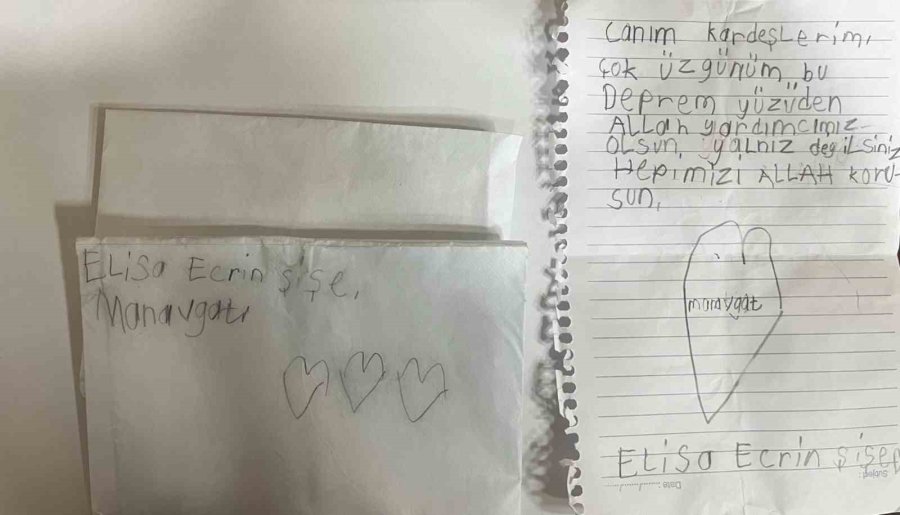 Elisa Ecrin şişe,
Manavgat,
canım kardeşLerim,
çok üzgünüm bu
Deprem yüzüden
ALLah yardımcımız
oLsun, yaLnız değiLsiniz
Hepimizi ALLAH koru-
sun,
manavgat
ELisa Ecrin şişe
Date :
Subject :